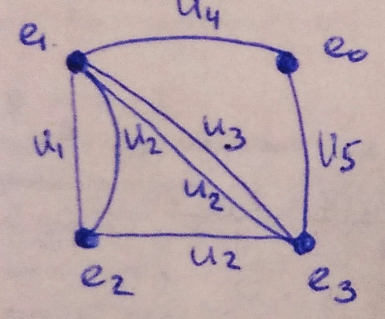 u₄
e₁ e₀
u₁ u₂ u₃ u₅
u₂
u₂
e₂ e₃